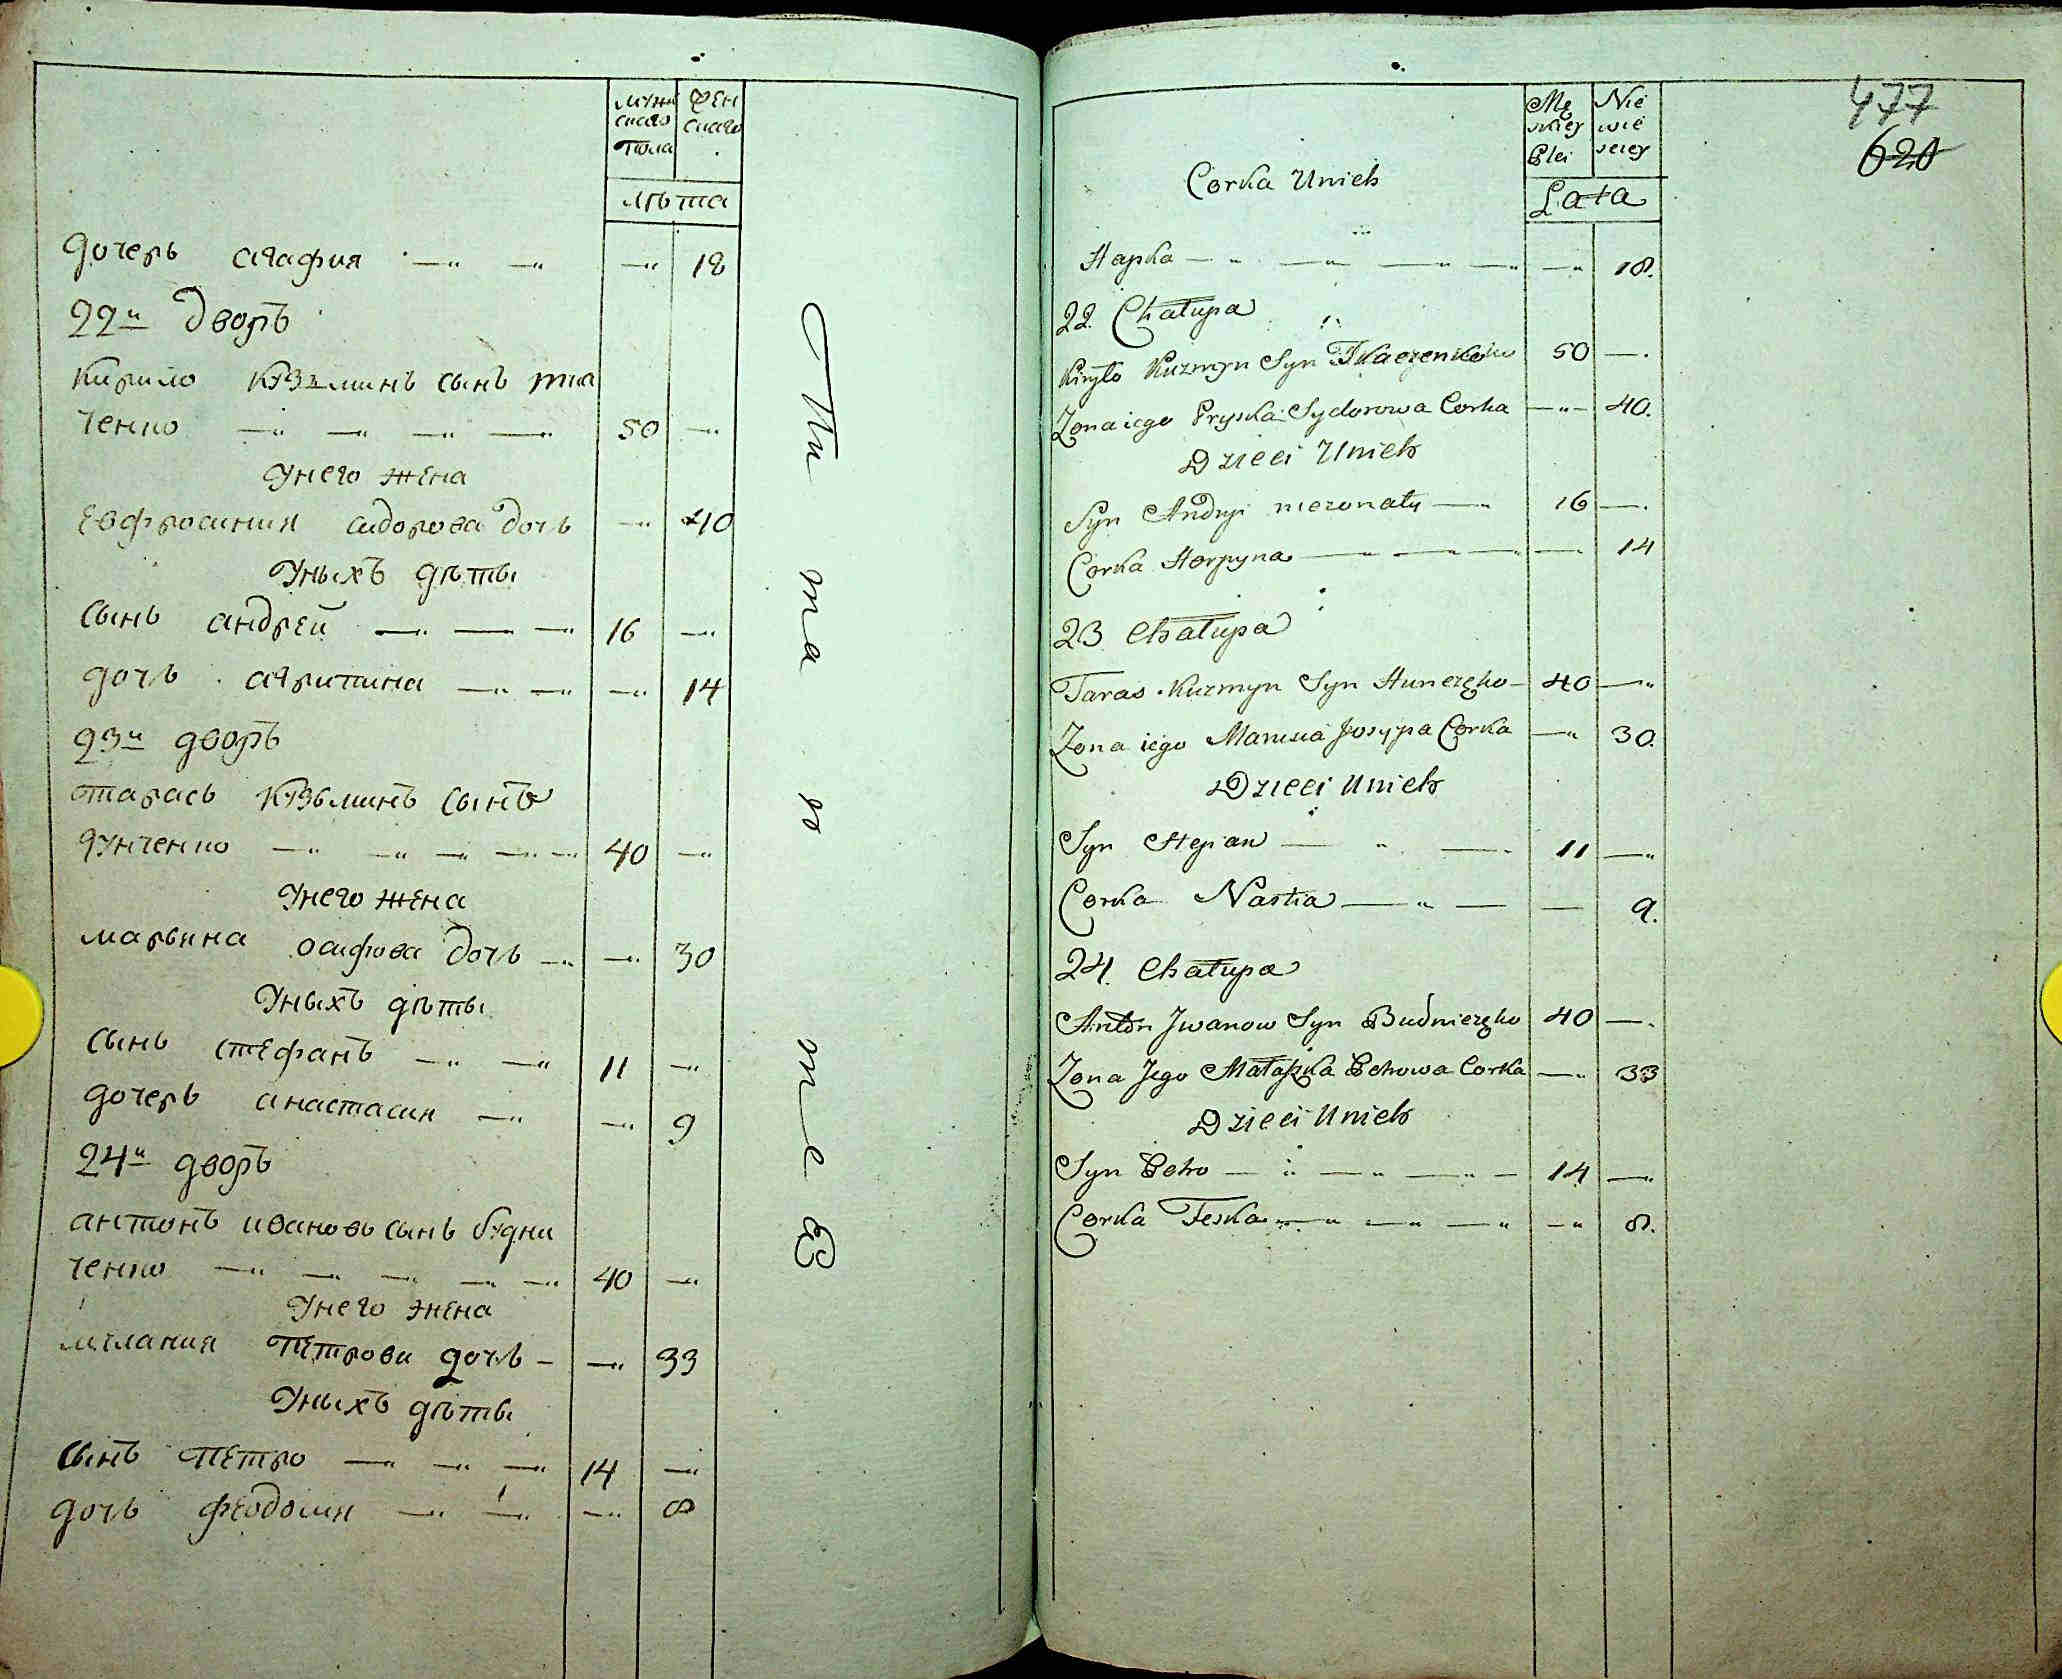 мужескаго пола
женскаго
лѣта
дочерь агафия 18
22й дворъ
кирило кузминъ сынъ тка
ченко 50
у него жена
евфросиния сидорова дочь 40
у ныхъ дѣты
сынъ андрей 16
дочь агрипина 14
23й дворъ
тарасъ кузьминъ сынъ
гунченко 40
у него жена
марьяна осифова дочь 30
у ныхъ дѣты
сынъ стефанъ 11
дочерь анастасия 9
24й дворъ
антонъ ивановъ сынъ будни
ченко 40
у него жена
мелания петрова дочь 33
у ныхъ дѣты
сынъ петро 14
дочь феодосия 8
477
620
Męskiey Płci
Niewiesciey
Lata
Corka Unich
Hapka 18.
22. Chałupa
Kiryło Kuzmyn Syn Tkaczenko 50
Zona iego Pryska Sydorowa Corka 40.
Dzieci Unich
Syn Andryi niezonaty 16
Corka Horpyna 14
23 Chałupa
Taras Kuzmyn Syn Hunczęko 40
Zona iego Josypa Corka 30.
Dzieci Unich
Syn Stepan 11
Corka Nastia 9.
24. Chałupa
Anton Jwanow Syn Budniczęko 40
Zona Jego Małaszka Petrowa Corka 33
Dzieci Unich
Syn Petro 14
Corka Feska 8.